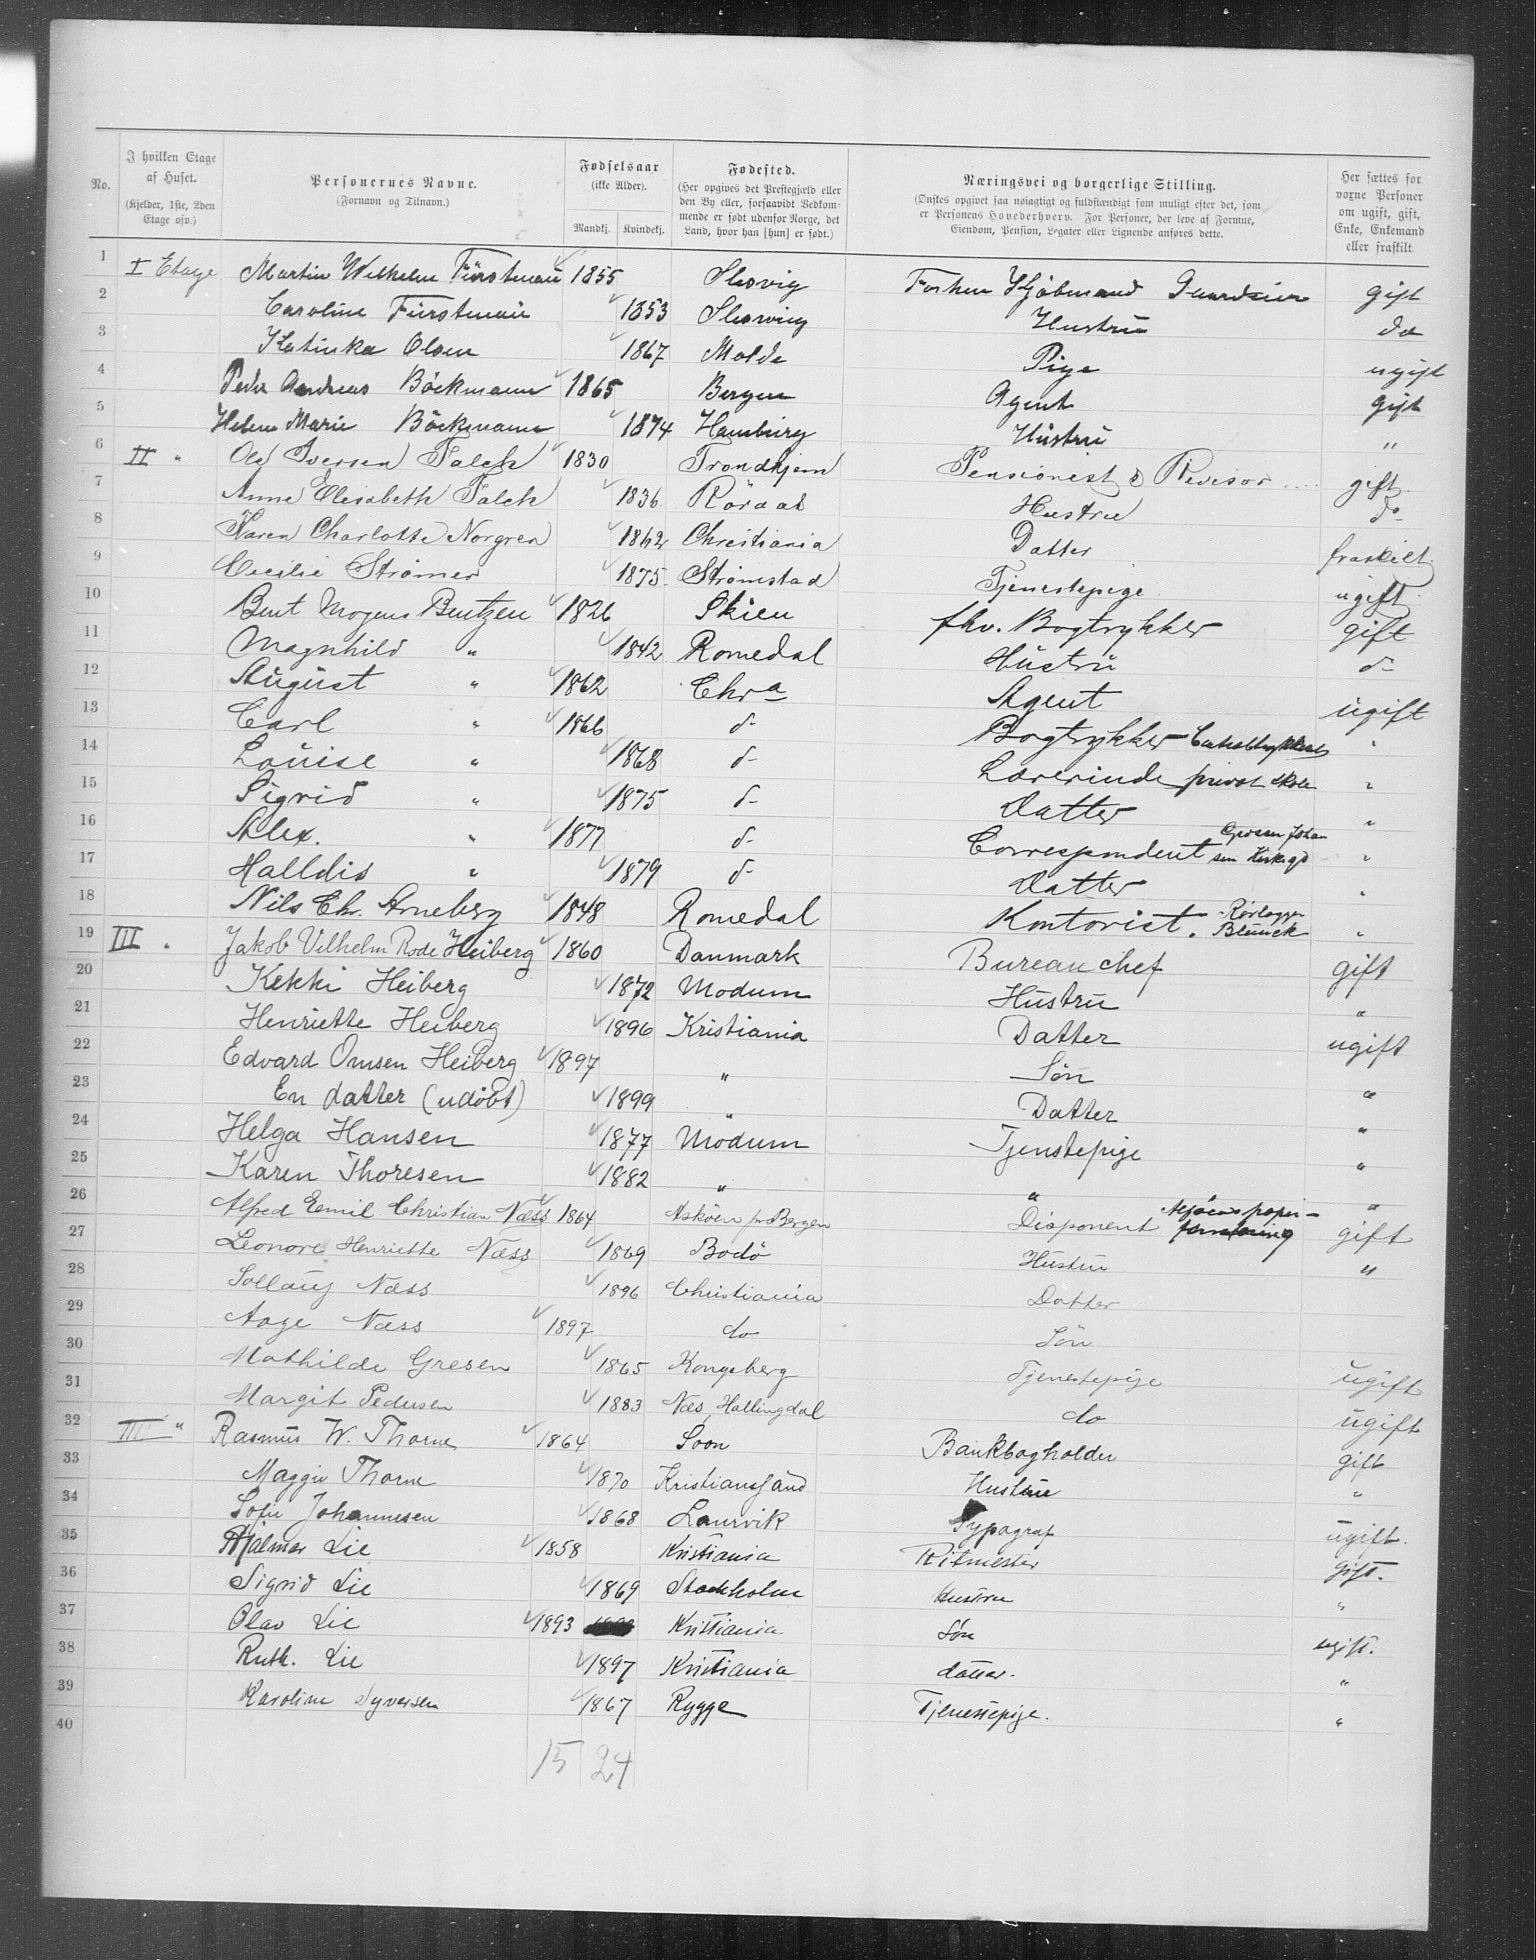 No.
I hvilken Etage af Huset.
(Kjelder, 1ste, 2den Etage osv.)
Personernes Navne.
(Fornavn og Tilnavn.)
Fødselsaar
(ikke Alder).
Mandkj. Kvindekj.
Fødested.
(Her opgives det Prestegjæld eller den By eller, forsaavidt Vedkommende er født udenfor Norge, det Land, hvor han [hun] er født.)
Næringsvei og borgerlige Stilling.
(Ønskes opgivet saa nøiagtigt og fuldstændigt som muligt efter det, som er Personens Hovederhverv. For Personer, der leve af Formue, Eiendom, Pension, Legater eller Lignende anføres dette.
Her sættes for voxne Personer om ugift, gift, Enke, Enkemand eller fraskilt
1 I Etage Martin Wilhelm Fürstnau 1855 Slesvig Kjøbmand gift
2 Caroline Fürstnau 1853 Slesvig Hustru do
3 Katinka Olsen 1867 Molde Pige ugift
4 Peder Andreas Böckmann 1865 Bergen Agent gift
5 Helene Marie Böckmann 1874 Hamburg Hustru "
6 II " Ole Iversen Falck 1830 Trondhjem Pensionist & Revisor gift
7 Anne Elisabeth Falck 1836 Röraas Hustru do
8 Karen Charlotte Norgren 1862 Christiania Datter fraskilt
9 Cecilie Strömer 1875 Strømstad Tjenestepige ugift
10 Bent Mogens Bentzen 1826 Skien fhv. Bogtrykker gift
11 Magnhild " 1842 Romedal Hustru d-
12 August " 1862 Chra Agent ugift
13 Carl " 1866 d- Bogtrykker Centraltrykkeri "
14 Louise " 1868 d- Lærerinde privat skole "
15 Sigrid " 1875 d- Datter "
16 Alex. " 1877 d- Correspondent Grosser Johansen Kirkegd "
17 Halldis " 1879 d- Datter "
18 Nils Chr. Arneberg 1848 Romedal Kontorist. Rørlægger Blunck "
19 III " Jakob Vilhelm Rode Heiberg 1860 Danmark Bureauchef gift
20 Kekki Heiberg 1872 Modum Hustru "
21 Henriette Heiberg 1896 Kristiania Datter ugift
22 Edvard Omsen Heiberg 1897 " Søn "
23 En datter (udöbt) 1899 " Datter "
24 Helga Hansen 1877 Modum Tjenstepige "
25 Karen Thoresen 1882 " " "
26 Alfred Emil Christian Næss 1864 Asköen pr Bergen Disponent gift
27 Leonore Henriette Næss 1869 Bodö Hustru "
28 Sollaug Næss 1896 Christiania Datter
29 Aage Næss 1897 do Sön
30 Mathilde Gresen 1865 Kongsberg Tjenestepige ugift
31 Margit Pedersen 1883 Næs, Hallingdal do ugift
32 IIII " Rasmus W. Thorne 1864 Soon Bankbogholder gift
33 Maggie Thorne 1870 Kristianssand Hustru "
34 Sofie Johannesen 1868 Laurvik Typograf ugift.
35 Hjalmar Lie 1858 Kristiania Ritmester gift.
36 Sigrid Lie 1869 Stockholm Hustru "
37 Olav Lie 1893 Kristiania Søn ugift.
38 Ruth. Lie 1897 Kristiania datter. "
39 Karoline Syversen 1867 Rygge Tjenestepige. "
40
15 24